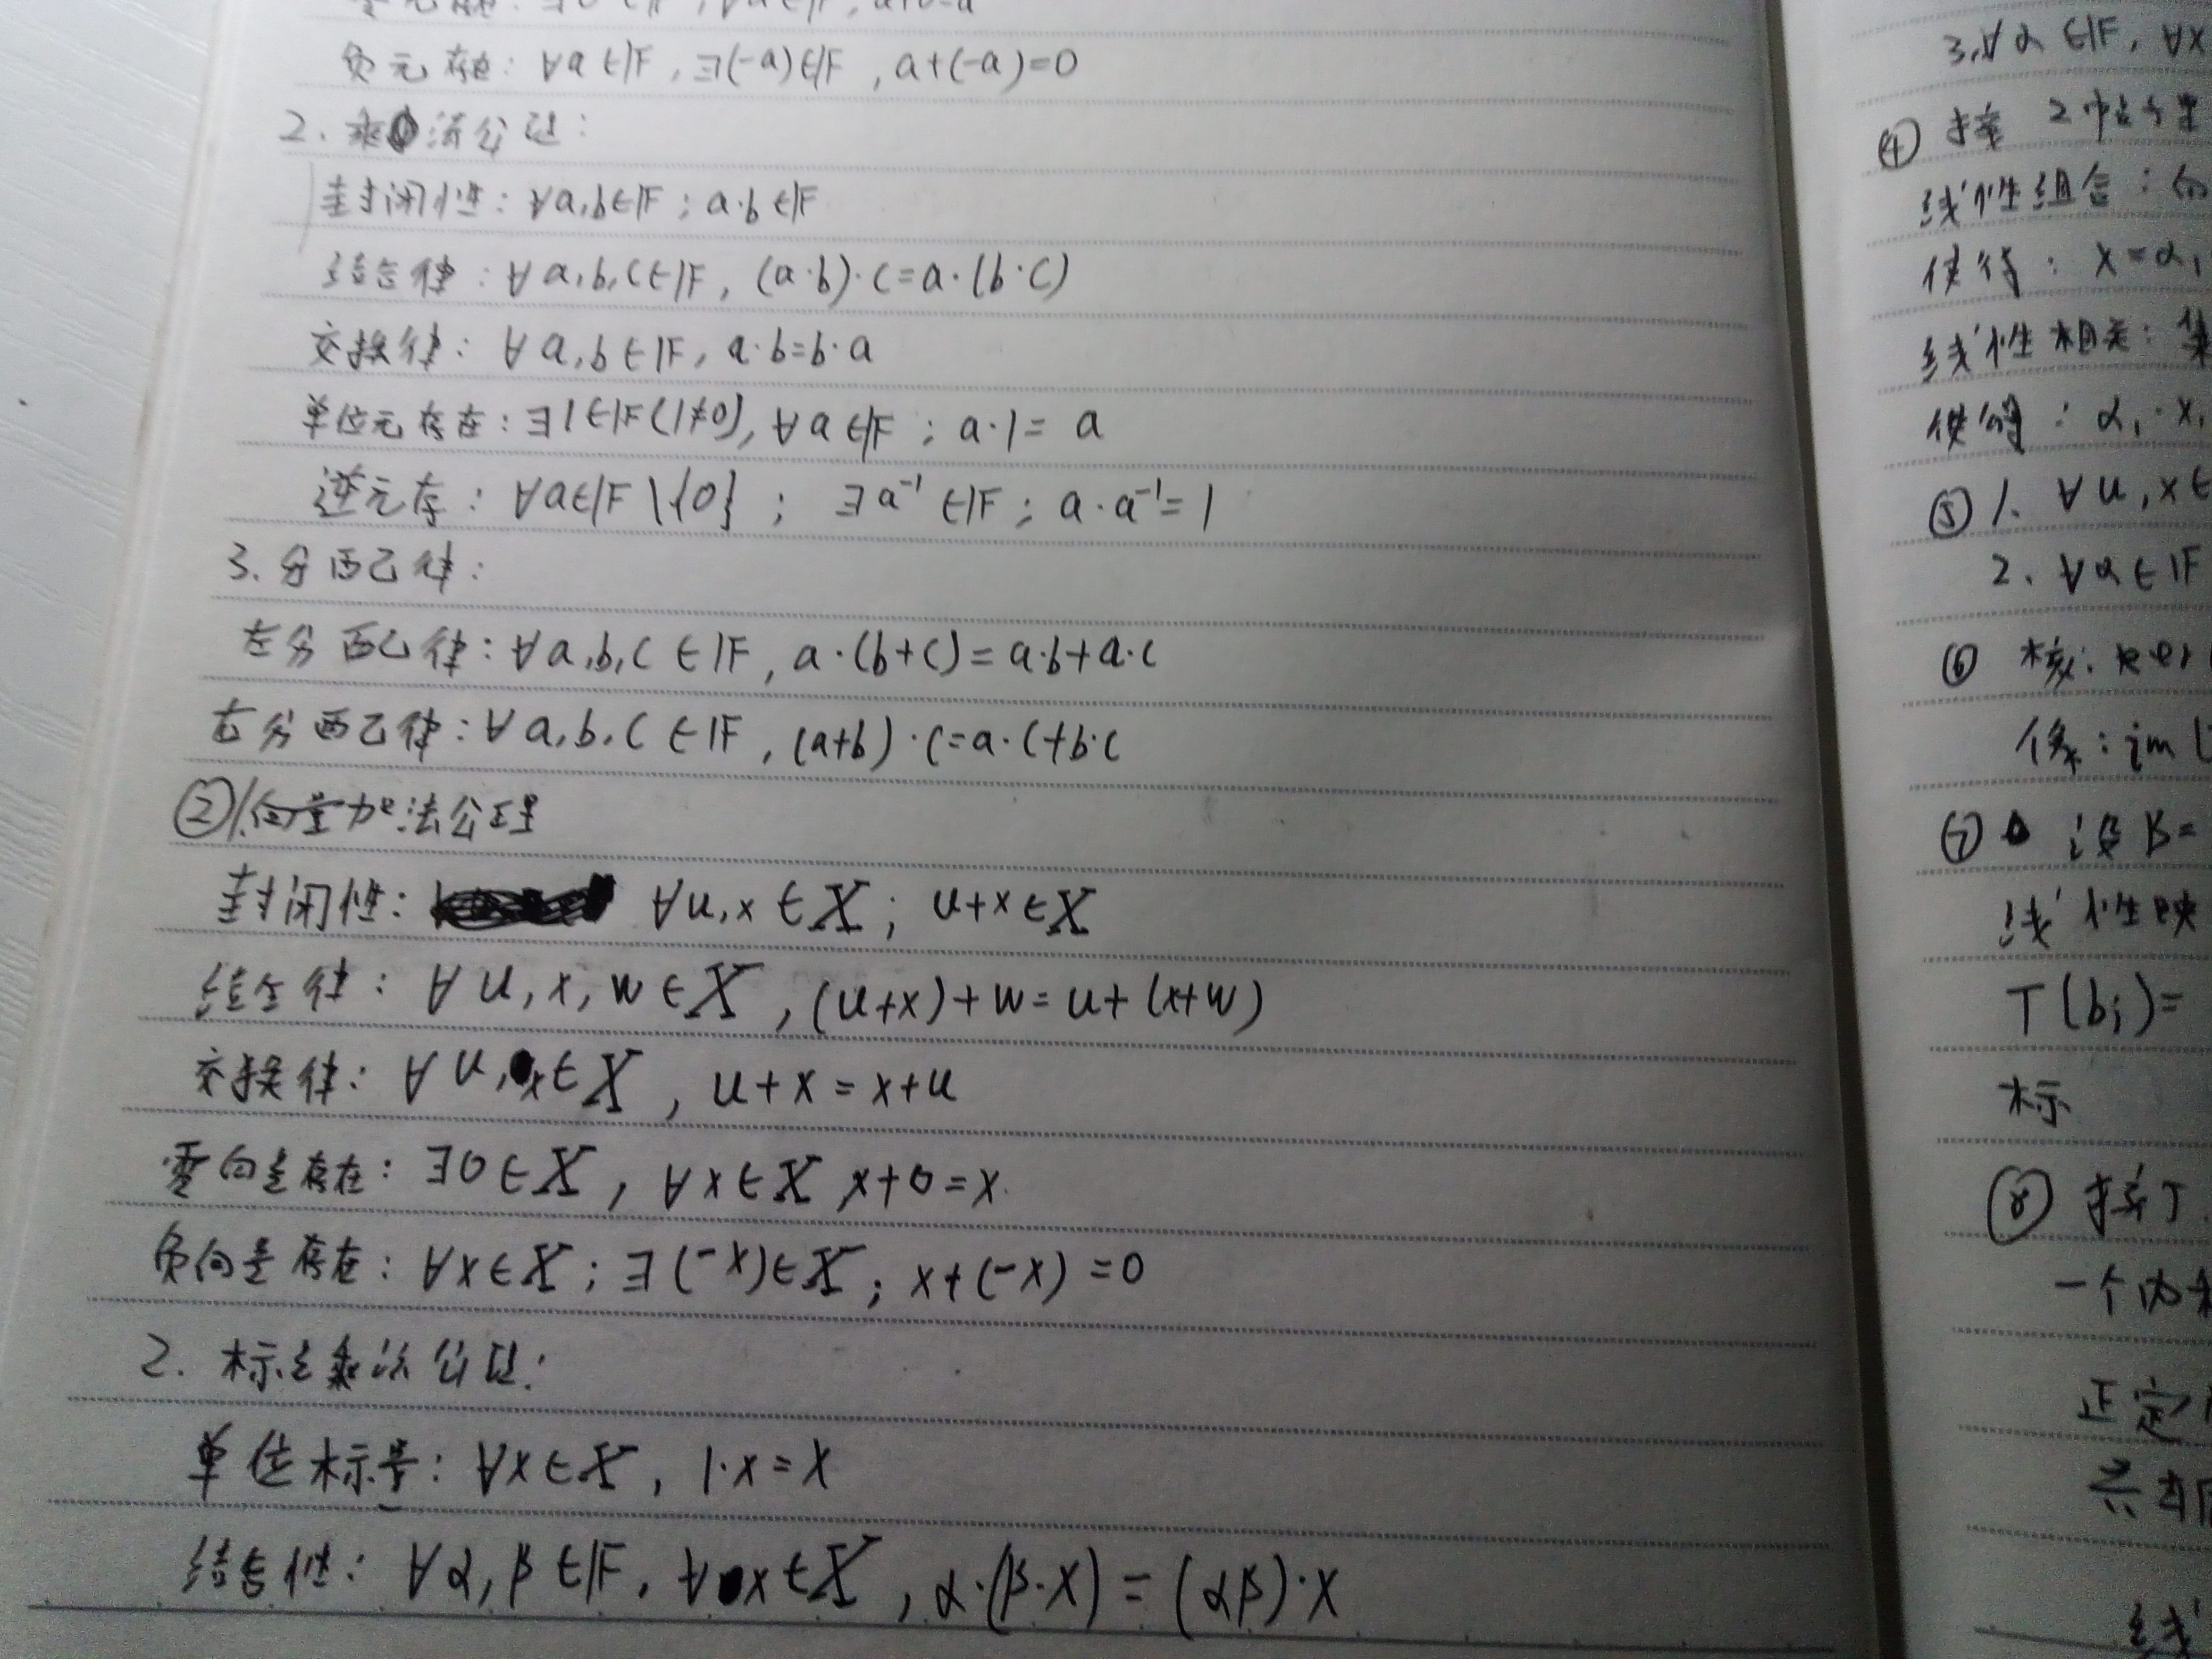 负元存在: ∀a∈F, ∃(-a)∈F, a+(-a)=0
2. 乘法公理:
封闭性: ∀a,b∈F; a·b∈F
结合律: ∀a,b,c∈F, (a·b)·c=a·(b·c)
交换律: ∀a,b∈F, a·b=b·a
单位元存在: ∃1∈F(1≠0), ∀a∈F; a·1=a
逆元存: ∀a∈F\{0}; ∃a⁻¹∈F; a·a⁻¹=1
3. 分配律:
左分配律: ∀a,b,c∈F, a·(b+c)=a·b+a·c
右分配律: ∀a,b,c∈F, (a+b)·c=a·c+b·c
② 1.向量加法公理
封闭性: ∀u,x∈X; u+x∈X
结合律: ∀u,x,w∈X, (u+x)+w=u+(x+w)
交换律: ∀u,x∈X, u+x=x+u
零向量存在: ∃0∈X, ∀x∈X x+0=x.
负向量存在: ∀x∈X; ∃(-x)∈X; x+(-x)=0
2. 标量乘法公理:
单位标量: ∀x∈X, 1·x=x
结合性: ∀α,β∈F, ∀x∈X, α·(β·x)=(αβ)·x
3.∀α∈F, ∀x
④ 接 2中
线性组合:
使得: x=α₁
线性相关: 集
使得: α₁·x₁
⑤ 1. ∀u,x∈
2. ∀α∈F
⑥ 核: ker
像: im
⑦ 设B=
线性映
T(bⱼ)=
标
⑧ 接了
一个内积
正定
共轭
线